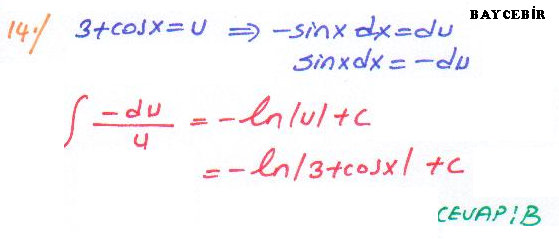 BAYCEBİR
14./ 3+cosx=u ⇒ -sinx dx=du
sinxdx=-du
∫ -du/u = -ln|u|+c
= -ln|3+cosx|+c
CEVAP:B